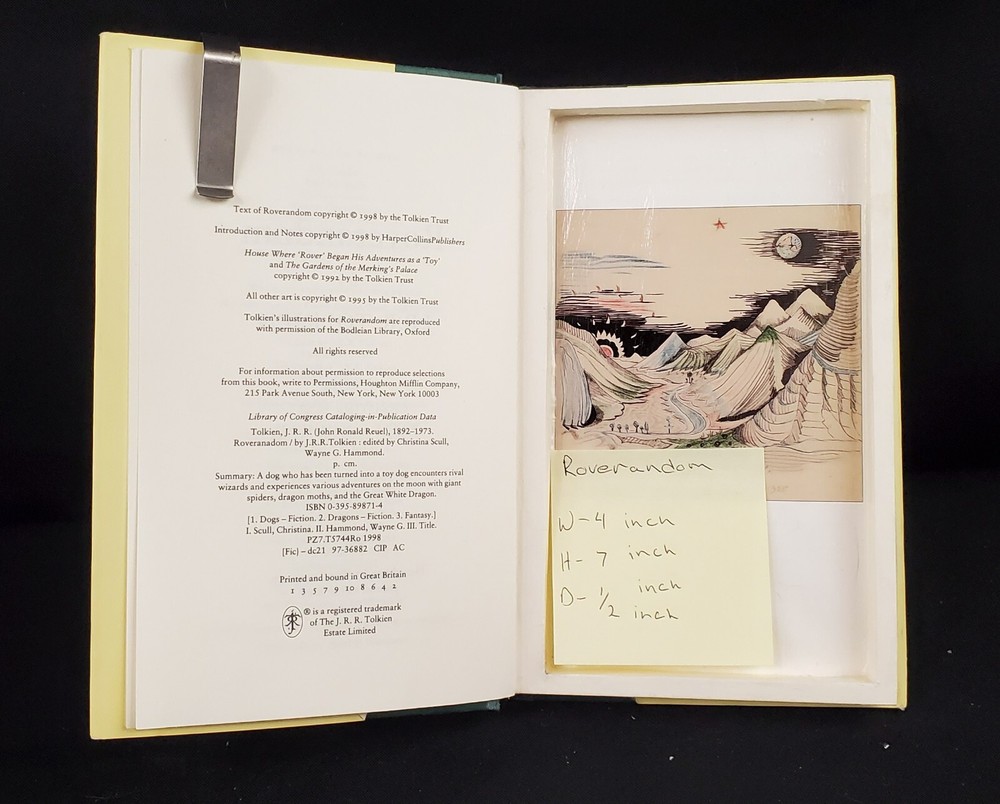 Text of Roverandom copyright © 1998 by the Tolkien Trust
Introduction and Notes copyright © 1998 by HarperCollinsPublishers
House Where 'Rover' Began His Adventures as a 'Toy'
and The Gardens of the Merking's Palace
copyright © 1992 by the Tolkien Trust
All other art is copyright © 1995 by the Tolkien Trust
Tolkien's illustrations for Roverandom are reproduced
with permission of the Bodleian Library, Oxford
All rights reserved
For information about permission to reproduce selections
from this book, write to Permissions, Houghton Mifflin Company,
215 Park Avenue South, New York, New York 10003
Library of Congress Cataloging-in-Publication Data
Tolkien, J. R. R. (John Ronald Reuel), 1892–1973.
Roveranadom / by J.R.R.Tolkien : edited by Christina Scull,
Wayne G. Hammond.
p. cm.
Summary: A dog who has been turned into a toy dog encounters rival
wizards and experiences various adventures on the moon with giant
spiders, dragon moths, and the Great White Dragon.
ISBN 0-395-89871-4
[1. Dogs – Fiction. 2. Dragons – Fiction. 3. Fantasy.]
I. Scull, Christina. II. Hammond, Wayne G. III. Title.
PZ7.T5744Ro 1998
[Fic] – dc21 97-36882 CIP AC
Printed and bound in Great Britain
1 3 5 7 9 10 8 6 4 2
® is a registered trademark
of The J. R. R. Tolkien
Estate Limited
Roverandom
W-4 inch
H-7 inch
D-1/2 inch
inch